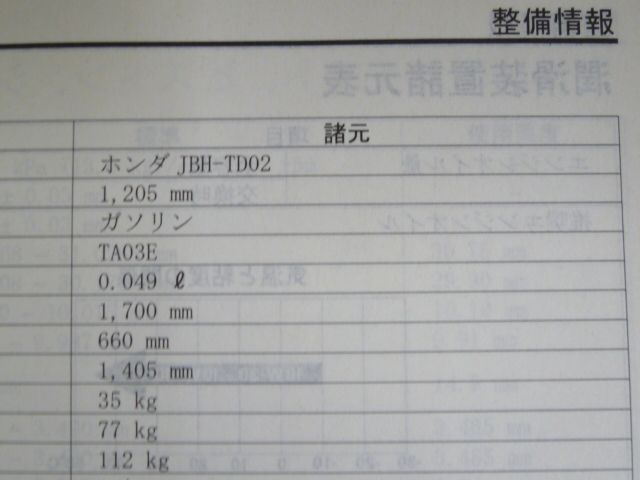 整備情報
諸元
ホンダ JBH-TD02
1,205 mm
ガソリン
TA03E
0.049 ℓ
1,700 mm
660 mm
1,405 mm
35 kg
77 kg
112 kg